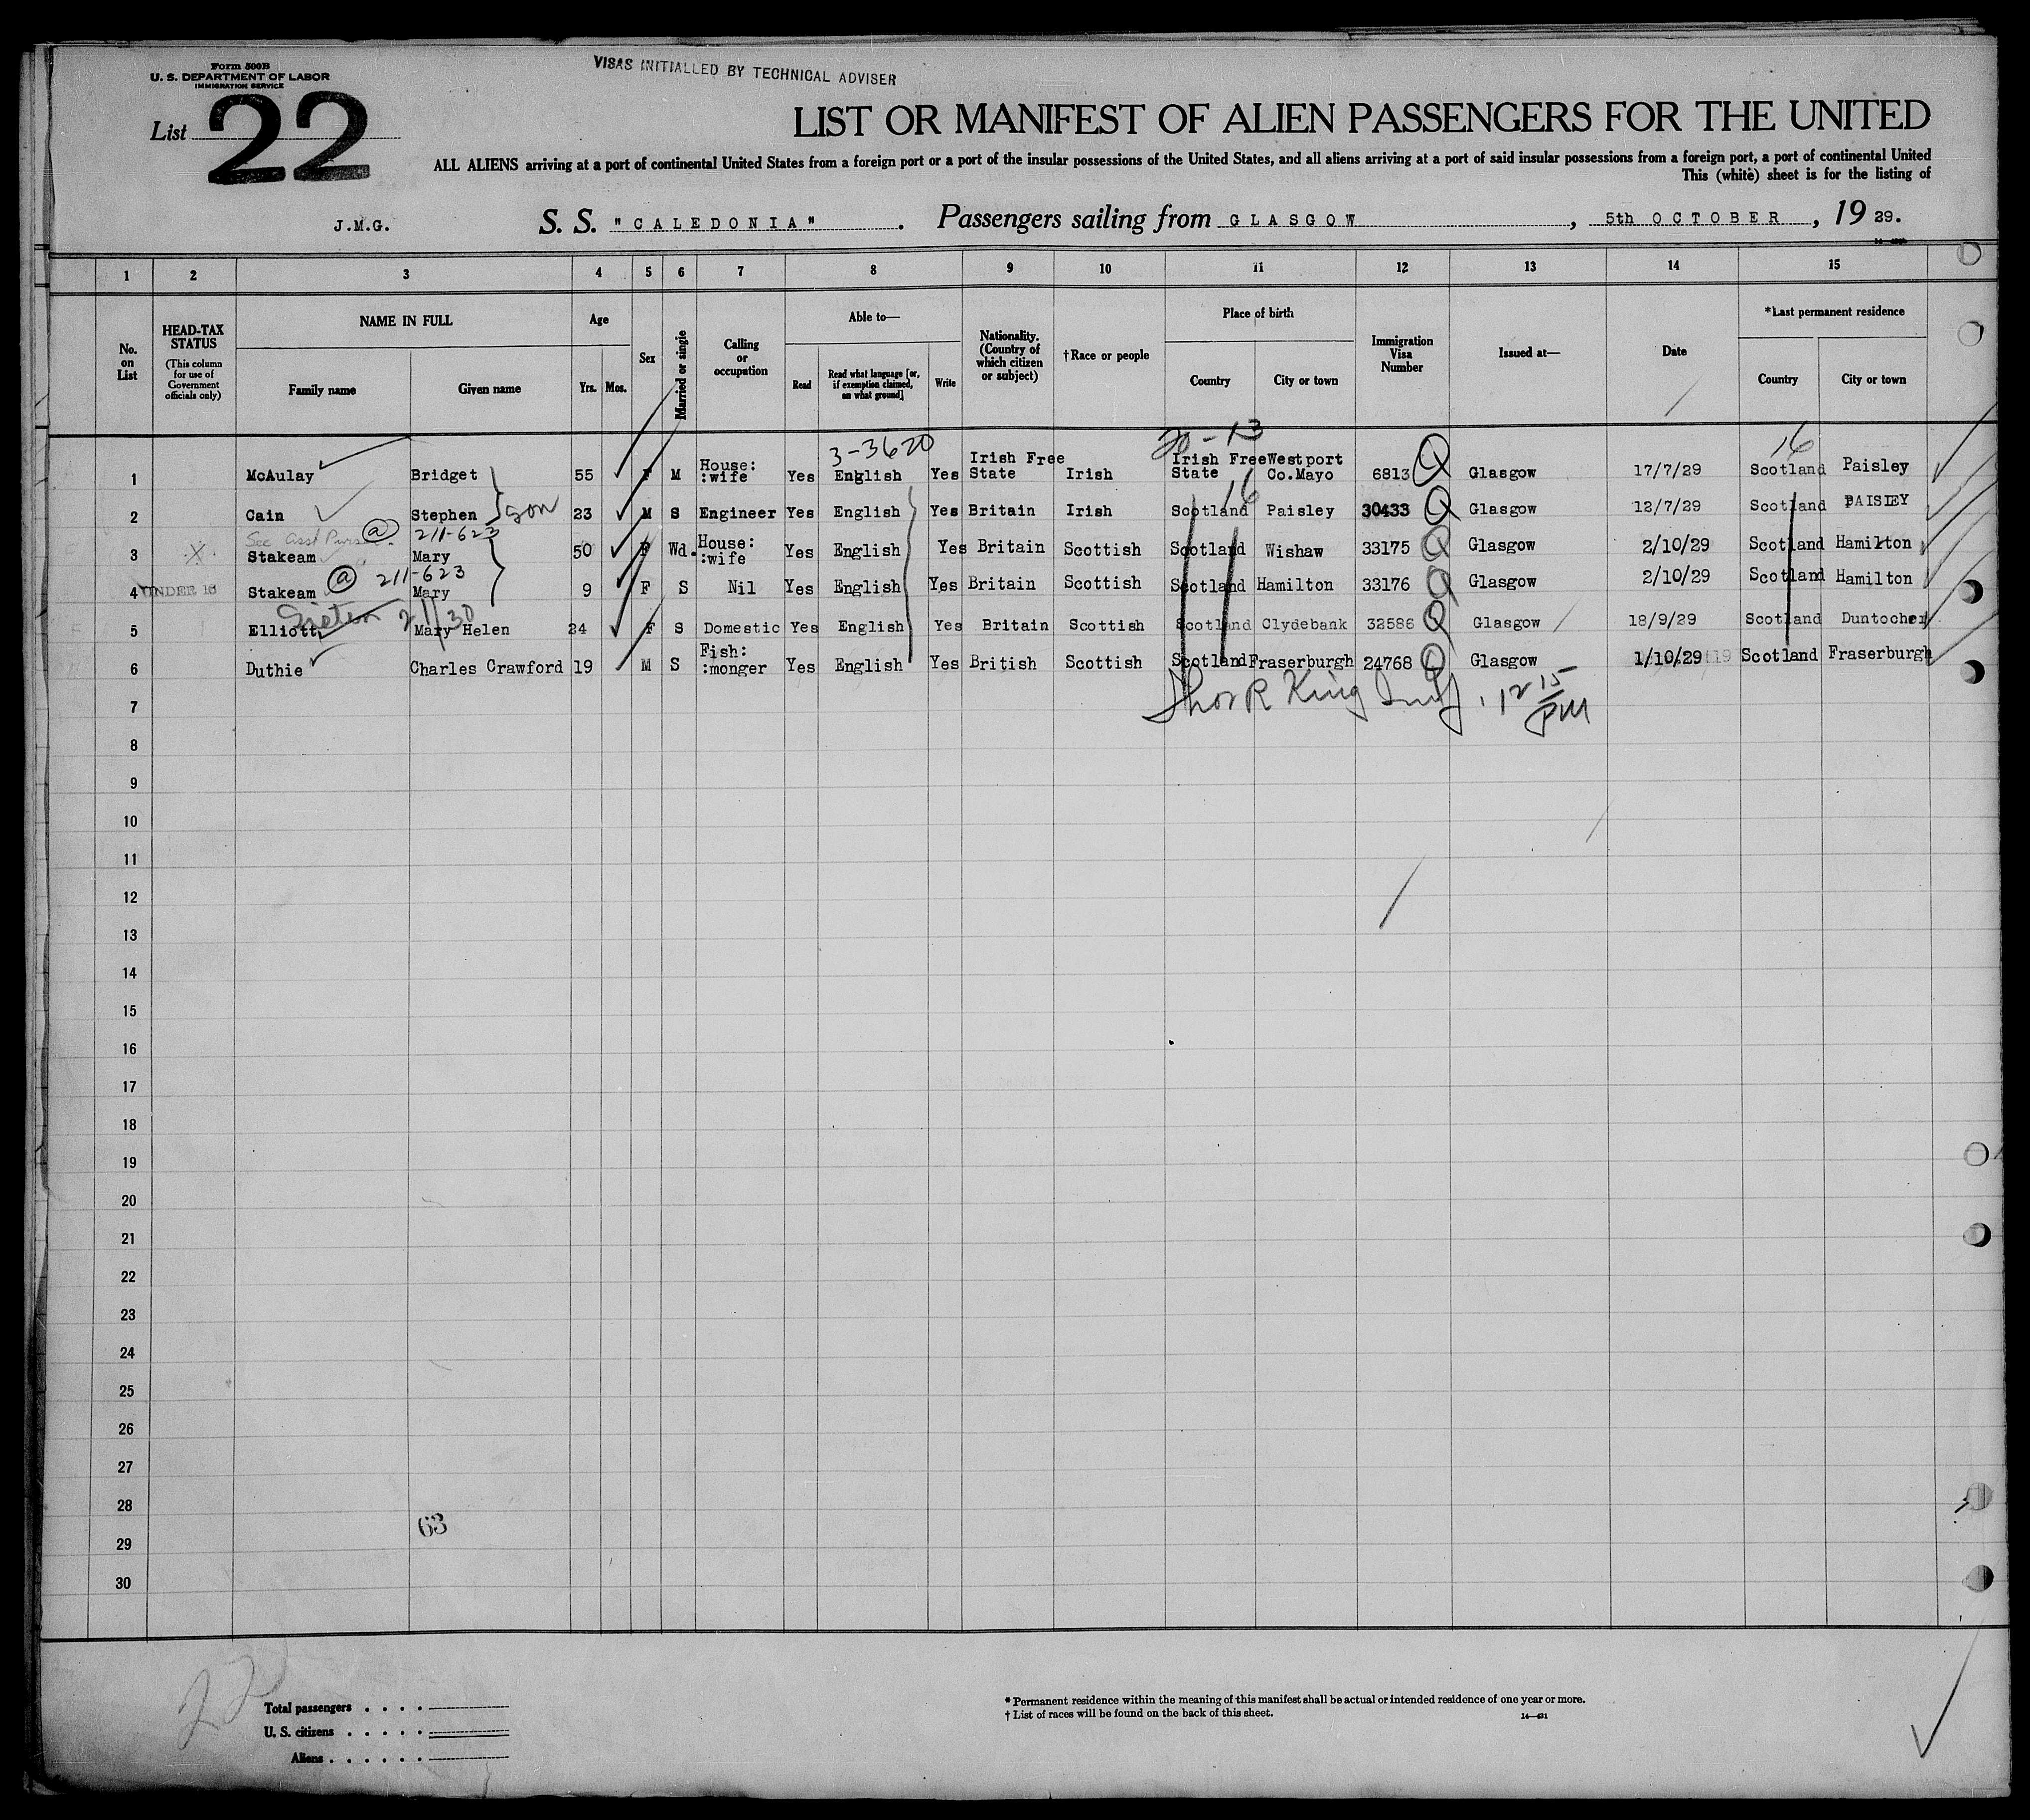 Form 500B
U. S. DEPARTMENT OF LABOR
IMMIGRATION SERVICE
VISAS INITIALLED BY TECHNICAL ADVISER
List 22
LIST OR MANIFEST OF ALIEN PASSENGERS FOR THE UNITED
ALL ALIENS arriving at a port of continental United States from a foreign port or a port of the insular possessions of the United States, and all aliens arriving at a port of said insular possessions from a foreign port, a port of continental United
This (white) sheet is for the listing of
J.M.G. S. S. "CALEDONIA". Passengers sailing from GLASGOW, 5th OCTOBER, 19 29.
1 2 3 4 5 6 7 8 9 10 11 12 13 14 15
No. on List
HEAD-TAX STATUS
(This column for use of Government officials only)
NAME IN FULL
Family name Given name
Age
Yrs. Mos.
Sex
Married or single
Calling or occupation
Able to—
Read
Read what language [or, if exemption claimed, on what ground]
Write
Nationality. (Country of which citizen or subject)
†Race or people
Place of birth
Country City or town
Immigration Visa Number
Issued at—
Date
*Last permanent residence
Country City or town
3-3620 20-13 16
1 McAulay Bridget 55 F M House: :wife Yes English Yes Irish Free State Irish Irish Free State Westport Co.Mayo 6813 Q Glasgow 17/7/29 Scotland Paisley
16
2 Cain Stephen son 23 M S Engineer Yes English Yes Britain Irish Scotland Paisley 30433 Q Glasgow 12/7/29 Scotland PAISLEY
See Asst @ 211-623
3 X Stakeam Mary 50 F Wd. House: :wife Yes English Yes Britain Scottish Scotland Wishaw 33175 Q Glasgow 2/10/29 Scotland Hamilton
@ 211-623
4 UNDER 16 Stakeam Mary 9 F S Nil Yes English Yes Britain Scottish Scotland Hamilton 33176 Q Glasgow 2/10/29 Scotland Hamilton
5 Elliott Mary Helen 24 F S Domestic Yes English Yes Britain Scottish Scotland Clydebank 32586 Q Glasgow 18/9/29 Scotland Duntocher
6 Duthie Charles Crawford 19 M S Fish: :monger Yes English Yes British Scottish Scotland Fraserburgh 24768 Q Glasgow 1/10/29 Scotland Fraserburgh
7 King 12 15 PM
8
9
10
11
12
13
14
15
16
17
18
19
20
21
22
23
24
25
26
27
28
63
29
30
22
Total passengers
U. S. citizens
Aliens
* Permanent residence within the meaning of this manifest shall be actual or intended residence of one year or more.
† List of races will be found on the back of this sheet.